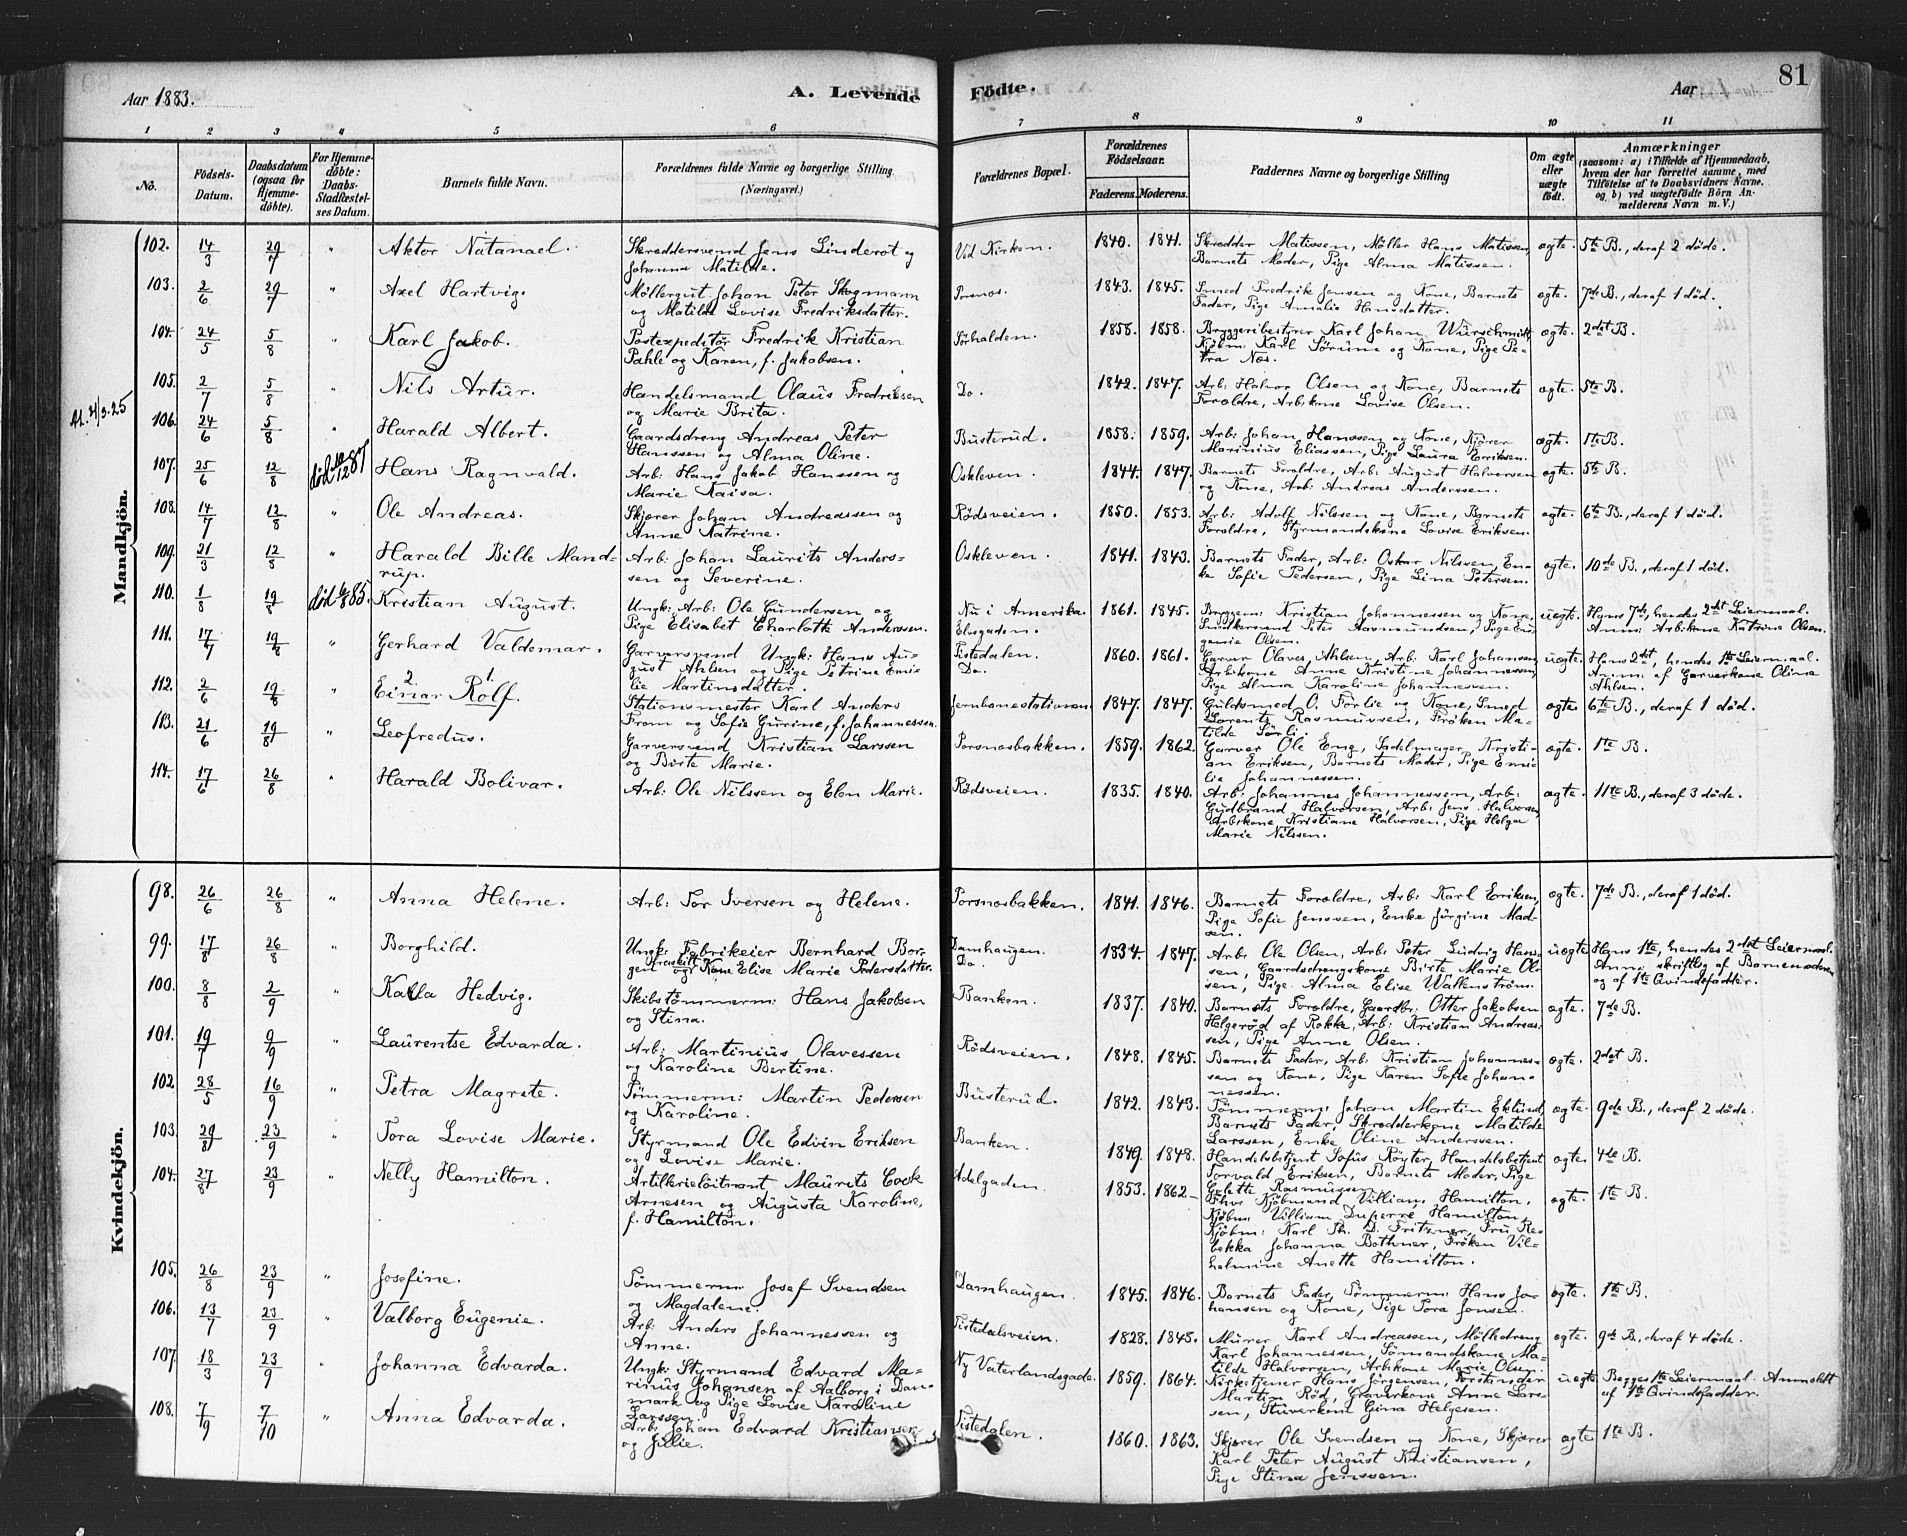 81
Aar 1883.
A. Levende Födte.
Aar
1 2 3 4 5 6 7 8 9 10 11
No.
Födsels-Datum.
Daabsdatum (ogsaa for Hjemme-döbte).
For Hjemme-döbte: Daabs-Stadfæstel-ses Datum.
Barnets fulde Navn.
Forældrenes fulde Navne og borgerlige Stilling (Næringsvei.)
Forældrenes Bopæl.
Forældrenes Födselsaar.
Faderens. Moderens.
Faddernes Navne og borgerlige Stilling
Om ægte eller uægte födt.
Anmærkninger
(saasom: a) i Tilfælde af Hjemmedaab, hvem der har forrettet samme, med Tilföielse af to Daabsvidners Navne, og b) ved uægtefödte Börn An-melderens Navn m. V.)
Mandkjön.
102. 14/3 29/7 " Aktor Natanael. Skræddersvend Jens Linderot og Johanna Matilde. Ved Kirken. 1840. 1841. Skrædder Matissen, Møller Hans Matissen, Barnets Moder, Pige Alma Matissen. ægte. 5te B., deraf 2 døde.
103. 2/6 29/7 " Axel Hartvig. Møllergut Johan Peter Skogmann og Matilde Lovise Fredriksdatter. Porsnæs. 1843. 1845. Smed Fredrik Jensen og Kone, Barnets Fader, Pige Amalie Hansdatter. ægte. 7de B., deraf 1 død.
104. 24/5 5/8 " Karl Jakob. Postexpeditør Fredrik Kristian Pahle og Karen, f. Jakobsen. Sørhalden. 1856. 1858. Bryggeribestyrer Karl Johan Würschmidt, Kjøbm. Karl Sørume og Kone, Pige Petra Næs. ægte. 2det B.
105. 2/7 5/8 " Nils Artur. Handelsmand Olaus Fredriksen og Marie Brita. Do. 1842. 1847. Arb: Halvor Olsen og Kone, Barnets Forældre, Arb:kone Lovise Olsen. ægte. 5te B.
106. 24/6 5/8 " Harald Albert. Gaardsdreng Andreas Peter Hanssen og Alma Oline. Busterud. 1858. 1859. Arb: Johan Hanssen og Kone, Kjører Marinius Eliassen, Pige Laura Eriksen. ægte. 1te B.
107. 25/6 12/8 død 10/12 87 Hans Ragnvald. Arb: Hans Jakob Hanssen og Marie Kaisa. Oskleven. 1844. 1847. Barnets Forældre, Arb: August Halvorsen og Kone, Arb: Andreas Anderssen. ægte. 5te B.
108. 14/7 12/8 " Ole Andreas. Skjærer Johan Andreassen og Anne Katrine. Rødsveien. 1850. 1853. Arb: Adolf Nilssen og Kone, Barnets Forældre, Styrmandskone Lovise Eriksen. ægte. 6te B., deraf 1 død.
109. 21/3 12/8 " Harald Bille Mandrup. Arb: Johan Laurits Anderssen og Severine. Oskleven. 1841. 1843. Barnets Fader, Arb: Oskar Nilssen, Enke Sofie Pedersen, Pige Lina Petersen. ægte. 10de B., deraf 1 død.
110. 1/8 19/8 Kristian August. Ungk: Arb: Ole Gundersen og Pige Elisabet Charlotte Anderssen. Nu i Amerika. Elvegaden. 1861. 1845. Kristian Johannessen og Kone, Snedkersvend Peter Aasmundsen, Pige Eugenie Olsen. uægte. Hans 7de, hendes 2det Leiermaal. Anm: Arb:kone Katrine Olsen.
111. 17/7 19/8 " Gerhard Valdemar. Garversvend Ungk: Hans August Ahlsen og Pige Petrine Emilie Martinsdatter. Tistedalen. Do. 1860. 1861. Garver Olaves Ahlsen, Arb: Karl Johansen, Arb:kone Anne Kristine Johannessen, Pige Alma Karoline Johannessen. uægte. Hans 2det, hendes 1te Leiermaal. Anm: af Garverkone Oline Ahlsen.
112. 2/6 19/8 " Einar 2 Rolf 1. Stationsmester Karl Anders From og Sofie Gurine, f. Johannessen. Jernbanestationen 1847. 1847. Guldsmed O. Førlie og Kone, Smed Lorents Rasmussen, Frøken Matilde Førli. ægte 6te B., deraf 1 død.
113. 21/6 19/8 " Leofredus. Garversvend Kristian Larssen og Birte Marie. Porsnæsbakken. 1859. 1862. Garver Ole Eng, Sadelmager Kristian Eriksen, Barnets Moder, Pige Emilie Johannessen. ægte. 1te B.
114. 17/6 26/8 " Harald Bolivar. Arb: Ole Nilssen og Elen Marie. Rødsveien. 1835. 1840. Arb: Johannes Johannessen, Arb: Gudbrand Halvorsen, Arb: Jens Halvorsen, Arb:kone Kristiane Halvorsen, Pige Helga Marie Nilssen. ægte. 11te B., deraf 3 døde.
Kvindekjön.
98. 26/6 26/8 " Anna Helene. Arb: Tor Iversen og Helene. Porsnæsbakken. 1841. 1846. Barnets Forældre, Arb: Karl Eriksen, Pige Sofie Jenssen, Enke Jørgine Madsen. ægte. 7de B., deraf 1 død.
99. 17/8 26/8 " Borghild. Ungk: Fabrikeier Bernhard Borgen og fraskilt Kone Elise Marie Pedersdatter. Damhaugen. Do. 1834. 1847. Arb: Ole Olsen, Arb: Peter Ludvig Hanssen, Gaardsdrengskone Birte Marie Olsen, Pige Alma Elise Wallenstrøm. uægte Hans 1te, hendes 2det Leiermaal. Anm: skriftlig af Barnemoderen og af 1te Qvindefadder.
100. 8/8 2/9 " Kalla Hedvig. Skibstømmerm: Hans Jakobsen og Stina. Banken. 1837. 1840. Barnets Forældre, Gaardbr: Otter Jakobsen Helgerød af Rokke, Arb: Kristian Andreassen, Pige Anne Olsen. ægte. 7de B.
101. 19/7 9/9 " Laurentse Edvarda. Arb: Martinius Olavessen og Karoline Bertine. Rødsveien. 1848. 1845. Barnets Fader, Arb: Kristian Johannessen og Kone, Pige Karen Sofie Johannessen. ægte. 2det B.
102 28/5 16/9 " Petra Magrete. Tømmerm: Martin Pedersen og Karoline. Busterud. 1842. 1843. Tømmerm: Johan Martin Eklund, Barnets Fader, Skrædderkone Matilde Larssen, Enke Oline Anderssen. ægte. 9de B., deraf 2 døde.
103. 29/8 23/9 " Tora Lovise Marie. Styrmand Ole Edvin Eriksen og Lovise Marie. Banken. 1849. 1848. Handelsbetjent Sofus Røyter, Handelsbetjent Torvald Eriksen, Barnets Moder, Pige Golette Rasmussen. ægte. 4de B.
104. 27/8 23/9 " Nelly Hamilton. Artilleriløitnant Maurits Cock Arnesen og Augusta Karoline, f. Hamilton. Adelgaden. 1853. 1862 Fhv: Kjøbmand Villiam Hamilton, Kjøbm: Villiam Duperre Hamilton, Kjøbm: Karl Th. D. Fritzner, Fru Rebekka Johanna Bothner, Frøken Vilhelmine Anette Hamilton. ægte. 1te B.
105. 26/8 23/9 " Josefine. Tømmerm: Josef Svendsen og Magdalene. Damhaugen. 1845. 1846. Barnets Fader, Tømmerm: Hans Johansen og Kone, Pige Tora Jonsen. ægte. 1te B.
106. 13/7 23/9 " Valborg Eugenie. Arb: Anders Johannessen og Anne. Tistedalsveien. 1828. 1845. Murer Karl Andreassen, Mølledreng Karl Johannessen, Sømandskone Matilde Halvorsen, Arb:kone Marie Olsen. ægte. 9de B., deraf 4 døde.
107. 18/3 23/9 " Johanna Edvarda. Ungk: Styrmand Edvard Marinus Johansen af Aalborg i Danmark og Pige Lovise Karoline Larssen. Ny Vaterlandsgade. 1859. 1864. Kirketjener Hans Jørgensen, Martin Rød, Graverkone Anne Larssen, Stuverkone Gina Helgesen. uægte Begges 1te Leiermaal: Anmeldt af 1te Qvindefadder.
108. 7/9 7/10 " Anna Edvarda. Arb: Johan Edvard Kristiansen og Julie. Tistedalen. 1860. 1863. Skjærer Ole Svendsen og Kone, Skjærer Karl Peter August Kristiansen, Pige Stina Jenssen. ægte 1te B.